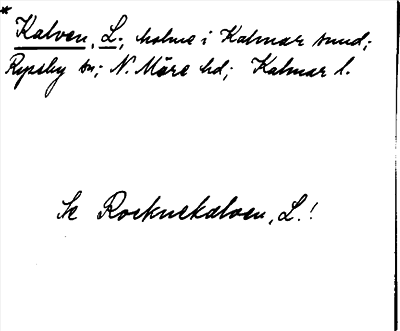 *
Kalven, L.; holme i Kalmar sund;
Ryssby sn; N. Möre hd; Kalmar l.
Se Rocknekalven, L.!